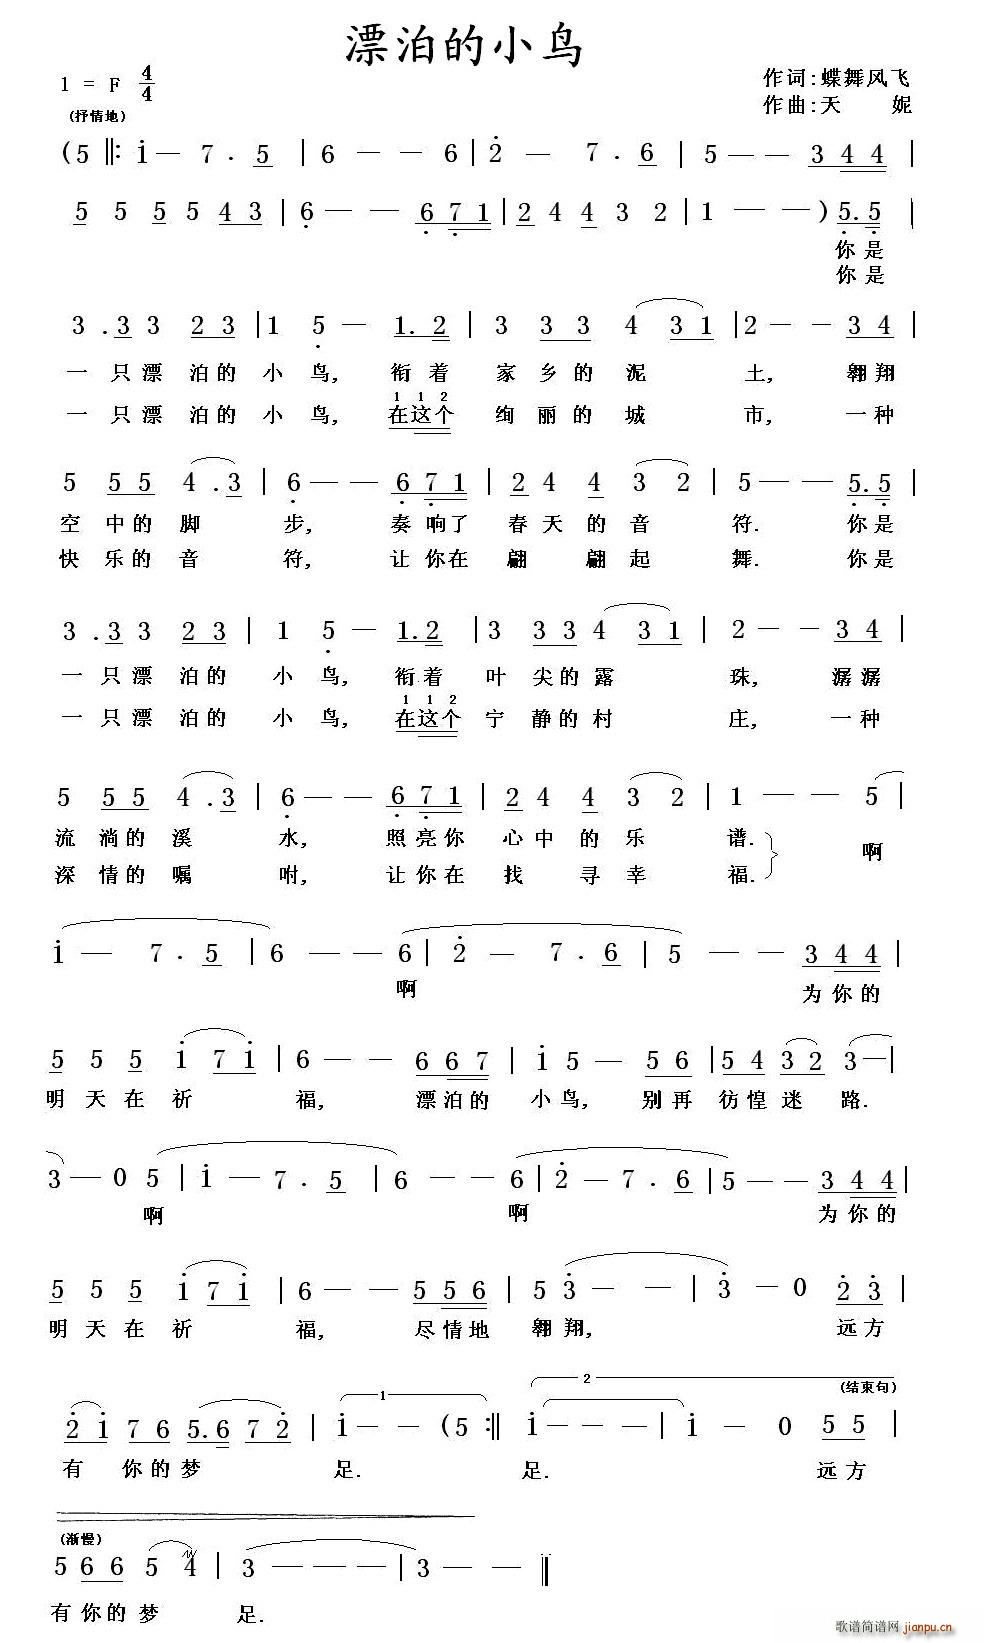 漂泊的小鸟
1 = F 4/4
作词:蝶舞风飞
(抒情地)
作曲:天 妮
(5 ‖: i — 7 . 5 | 6 — — 6 | 2 — 7 . 6 | 5 — — 3 4 4 |
5 5 5 5 4 3 | 6 — — 6 7 1 | 2 4 4 3 2 | 1 — — ) 5. 5 |
你是
你是
3 . 3 3 2 3 | 1 5 — 1. 2 | 3 3 3 4 3 1 | 2 — — 3 4 |
一 只 漂 泊 的 小 鸟, 衔 着 家 乡 的 泥 土, 翱 翔
1 1 2
一 只 漂 泊 的 小 鸟, 在这个 绚 丽 的 城 市, 一 种
5 5 5 4 . 3 | 6 — — 6 7 1 | 2 4 4 3 2 | 5 — — 5. 5 |
空 中 的 脚 步, 奏 响 了 春 天 的 音 符. 你 是
快 乐 的 音 符, 让 你 在 翩 翩 起 舞. 你 是
3 . 3 3 2 3 | 1 5 — 1. 2 | 3 3 3 4 3 1 | 2 — — 3 4 |
一 只 漂 泊 的 小 鸟, 衔 着 叶 尖 的 露 珠, 潺 潺
1 1 2
一 只 漂 泊 的 小 鸟, 在这个 宁 静 的 村 庄, 一 种
5 5 5 4 . 3 | 6 — — 6 7 1 | 2 4 4 3 2 | 1 — — 5 |
流 淌 的 溪 水, 照 亮 你 心 中 的 乐 谱.
啊
深 情 的 嘱 咐, 让 你 在 找 寻 幸 福.
i — 7 . 5 | 6 — — 6 | 2 — 7 . 6 | 5 — — 3 4 4 |
啊 为 你 的
5 5 5 i 7 i | 6 — — 6 6 7 | i 5 — 5 6 | 5 4 3 2 3 — |
明 天 在 祈 福, 漂 泊 的 小 鸟, 别 再 彷 惶 迷 路.
3 — 0 5 | i — 7 . 5 | 6 — — 6 | 2 — 7 . 6 | 5 — — 3 4 4 |
啊 啊 为 你 的
5 5 5 i 7 i | 6 — — 5 5 6 | 5 3 — — | 3 — 0 2 3 |
明 天 在 祈 福, 尽 情 地 翱 翔, 远 方
1 2 (结束句)
2 i 7 6 5. 6 7 2 | i — — (5 :‖ i — — — | i — 0 5 5 |
有 你 的 梦 足. 足. 远 方
(渐慢)
5 6 6 5 4 | 3 — — — | 3 — — ‖
有 你 的 梦 足.
歌谱简谱网 jianpu.cn